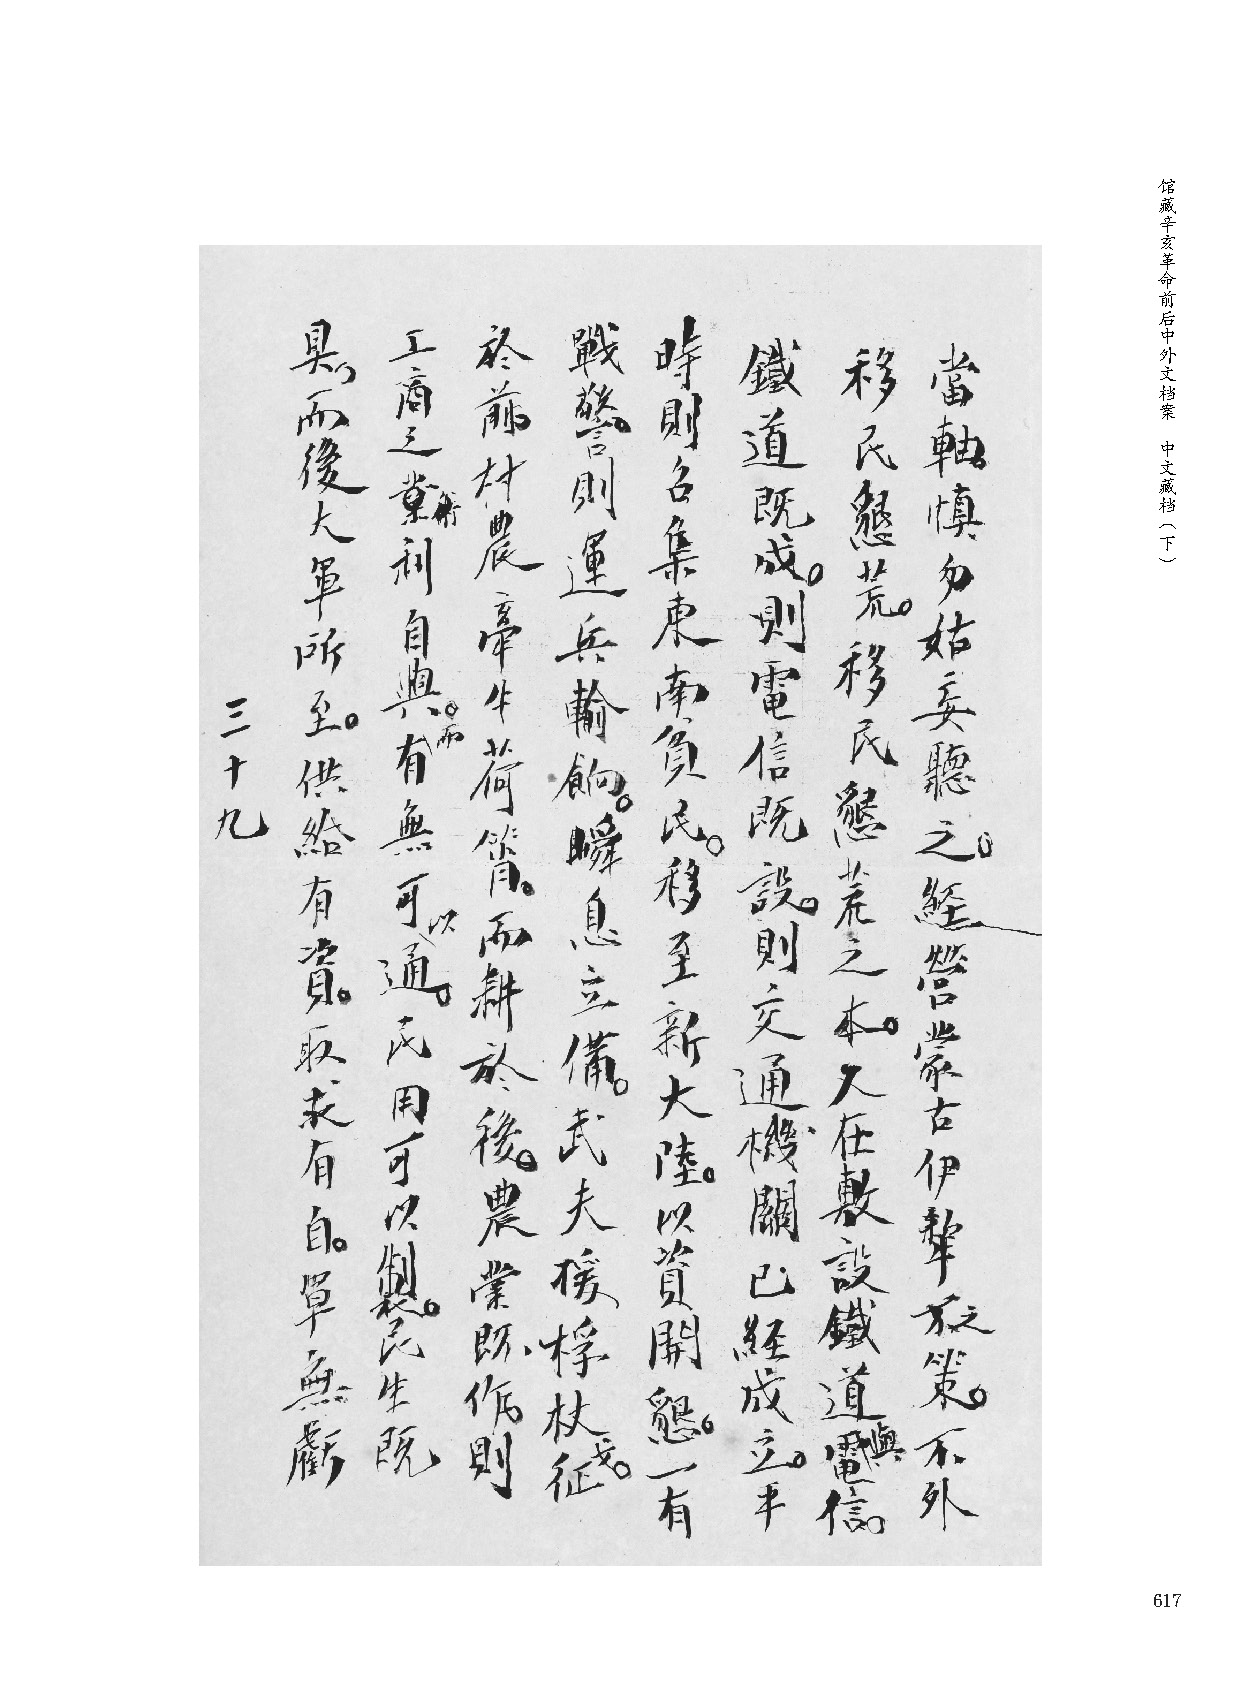 馆藏辛亥革命前后中外文档案 中文藏档（下）
當軸。慎勿姑妄聽之。経營蒙古伊犂之策。不外
移民懇荒。移民懇荒之本。又在敷設鐵道與電信。
鐵道既成。則電信既設。則交通機關已経成立。平
時則召集東南負民。移至新大陸。以資開懇。一有
戰警。則運兵輸餉。瞬息立備。武夫援桴杖戈。征
於前。村農牽牛荷筲。而耕於後。農業既作。則
工商之業術利自興。而有無可以通。民用可以製。民生既
具。而後大軍所至。供給有資。取求有自。單無虧
三十九
617